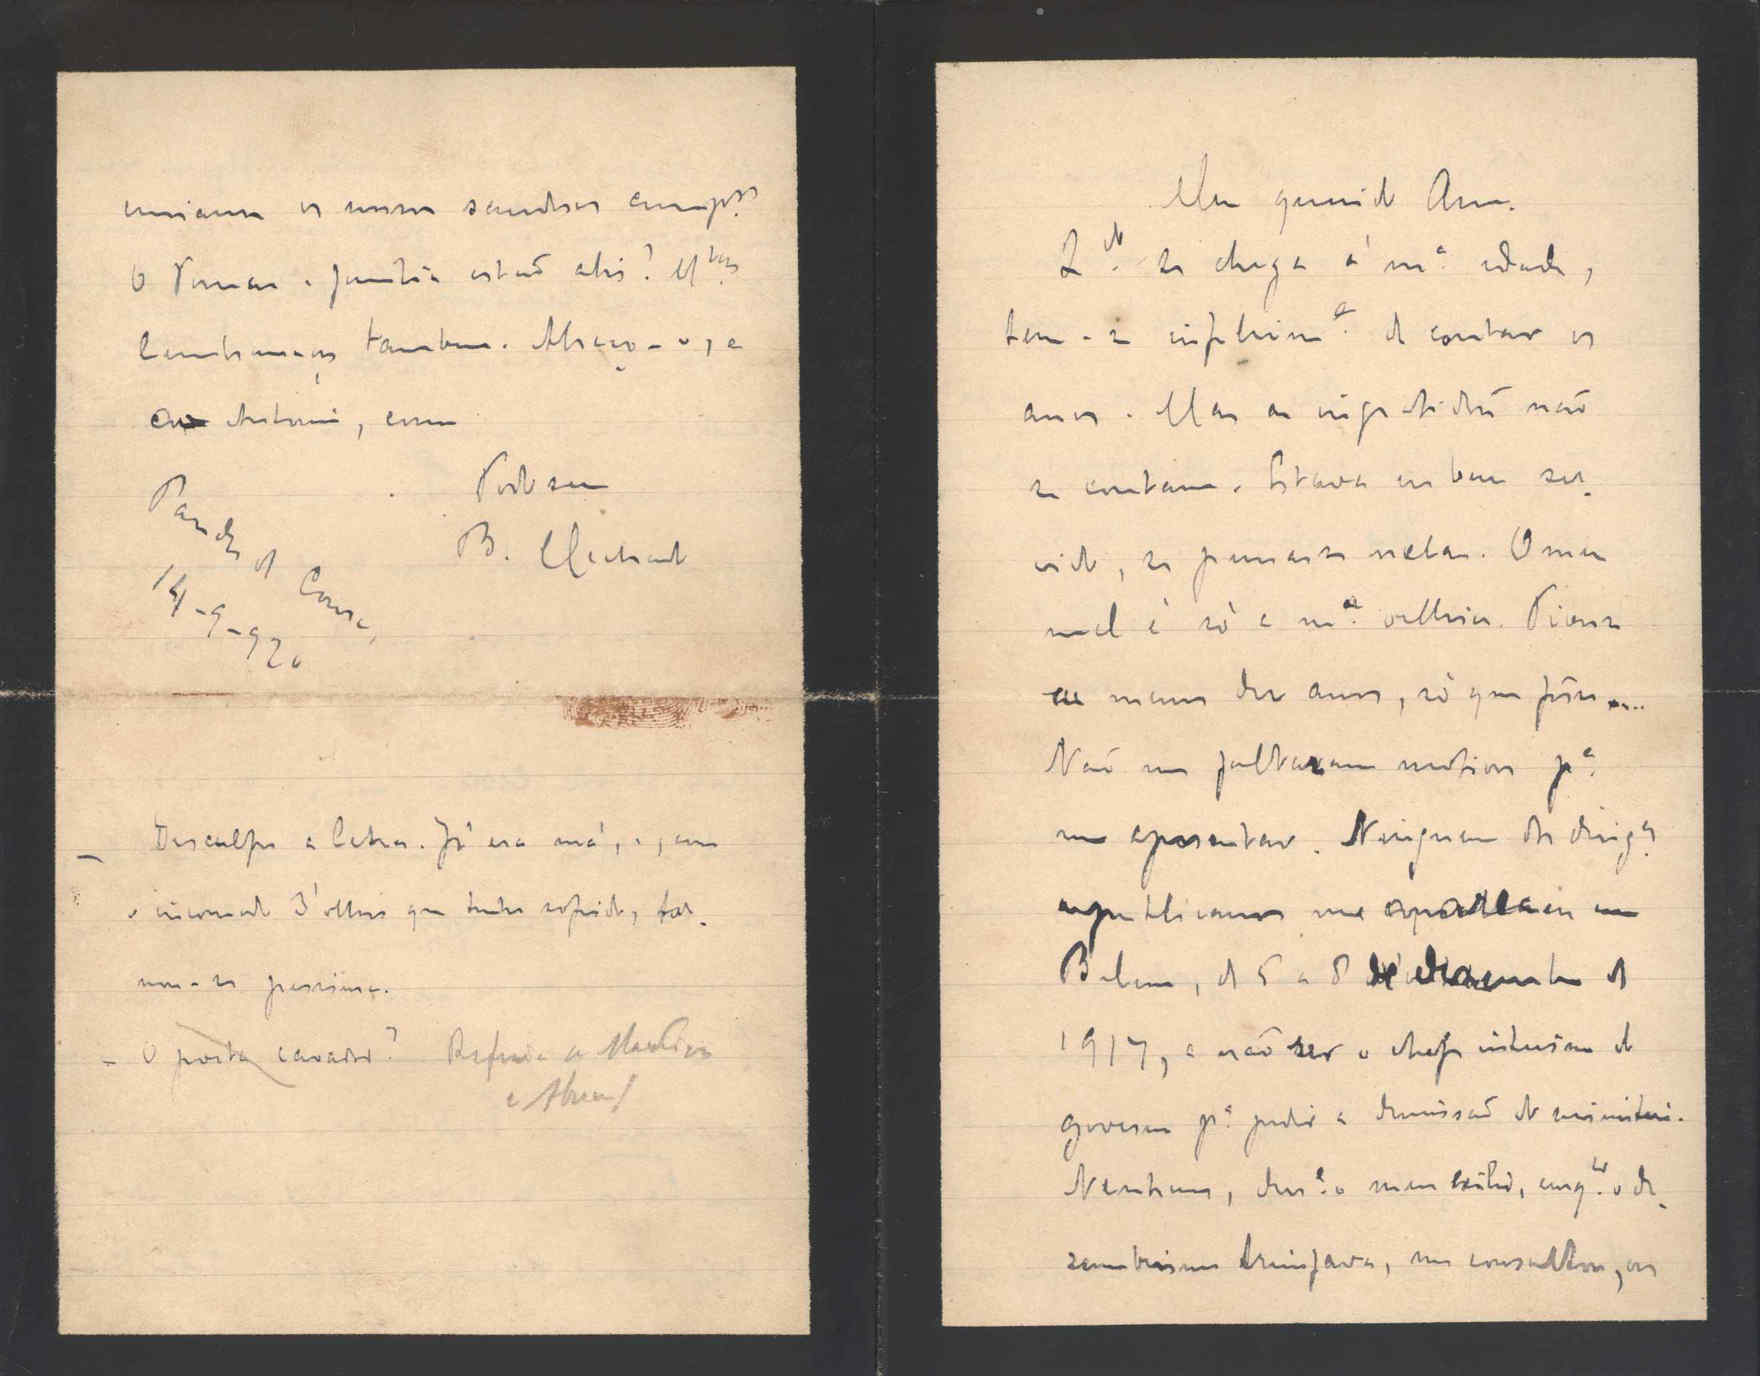 enviamos os nossos saudosos cumptos.
O Tomaz e familia estão ahi? Mtas.
lembranças tambem. Abraço-o, e
ao Antonio, como
Todo seu
B. Machado
Paredes de Coura,
14-9-920
— Desculpe a letra. Já era má, e, com
o incomodo d'olhos que tenho sofrido, tor-
nou-se pessima.
— O poeta cavador?
e Abreu
Meu querido Amo.
Qdo. se chega á ma. edade,
tem-se infelizme. de contar os
anos. Mas as ingratidões não
se contam. Estava eu bem ser-
vido, se pensasse nelas. O meu
mal é só a ma. velhice. Tivesse
eu menos dez anos, só que fôsse....
Não me faltavam motivos pa.
me aposentar. Ninguem dos dirigtes.
republicanos me apareceu em
Belem, de 5 a 8 de dezembro de
1917, a não ser o chefe interino do
governo pa. pedir a demissão do ministerio.
Nenhum, durte. o meu exilio, emqto. o de-
zembrismo triunfava, me consultou, ou